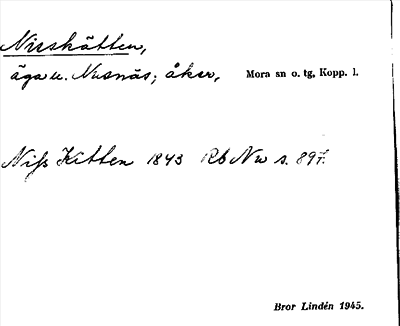 Nisskätten,
äga u. Nusnäs; åker, Mora sn o. tg, Kopp. l.
Niss Kitten 1843 Rb Nw s. 897.
Bror Lindén 1945.